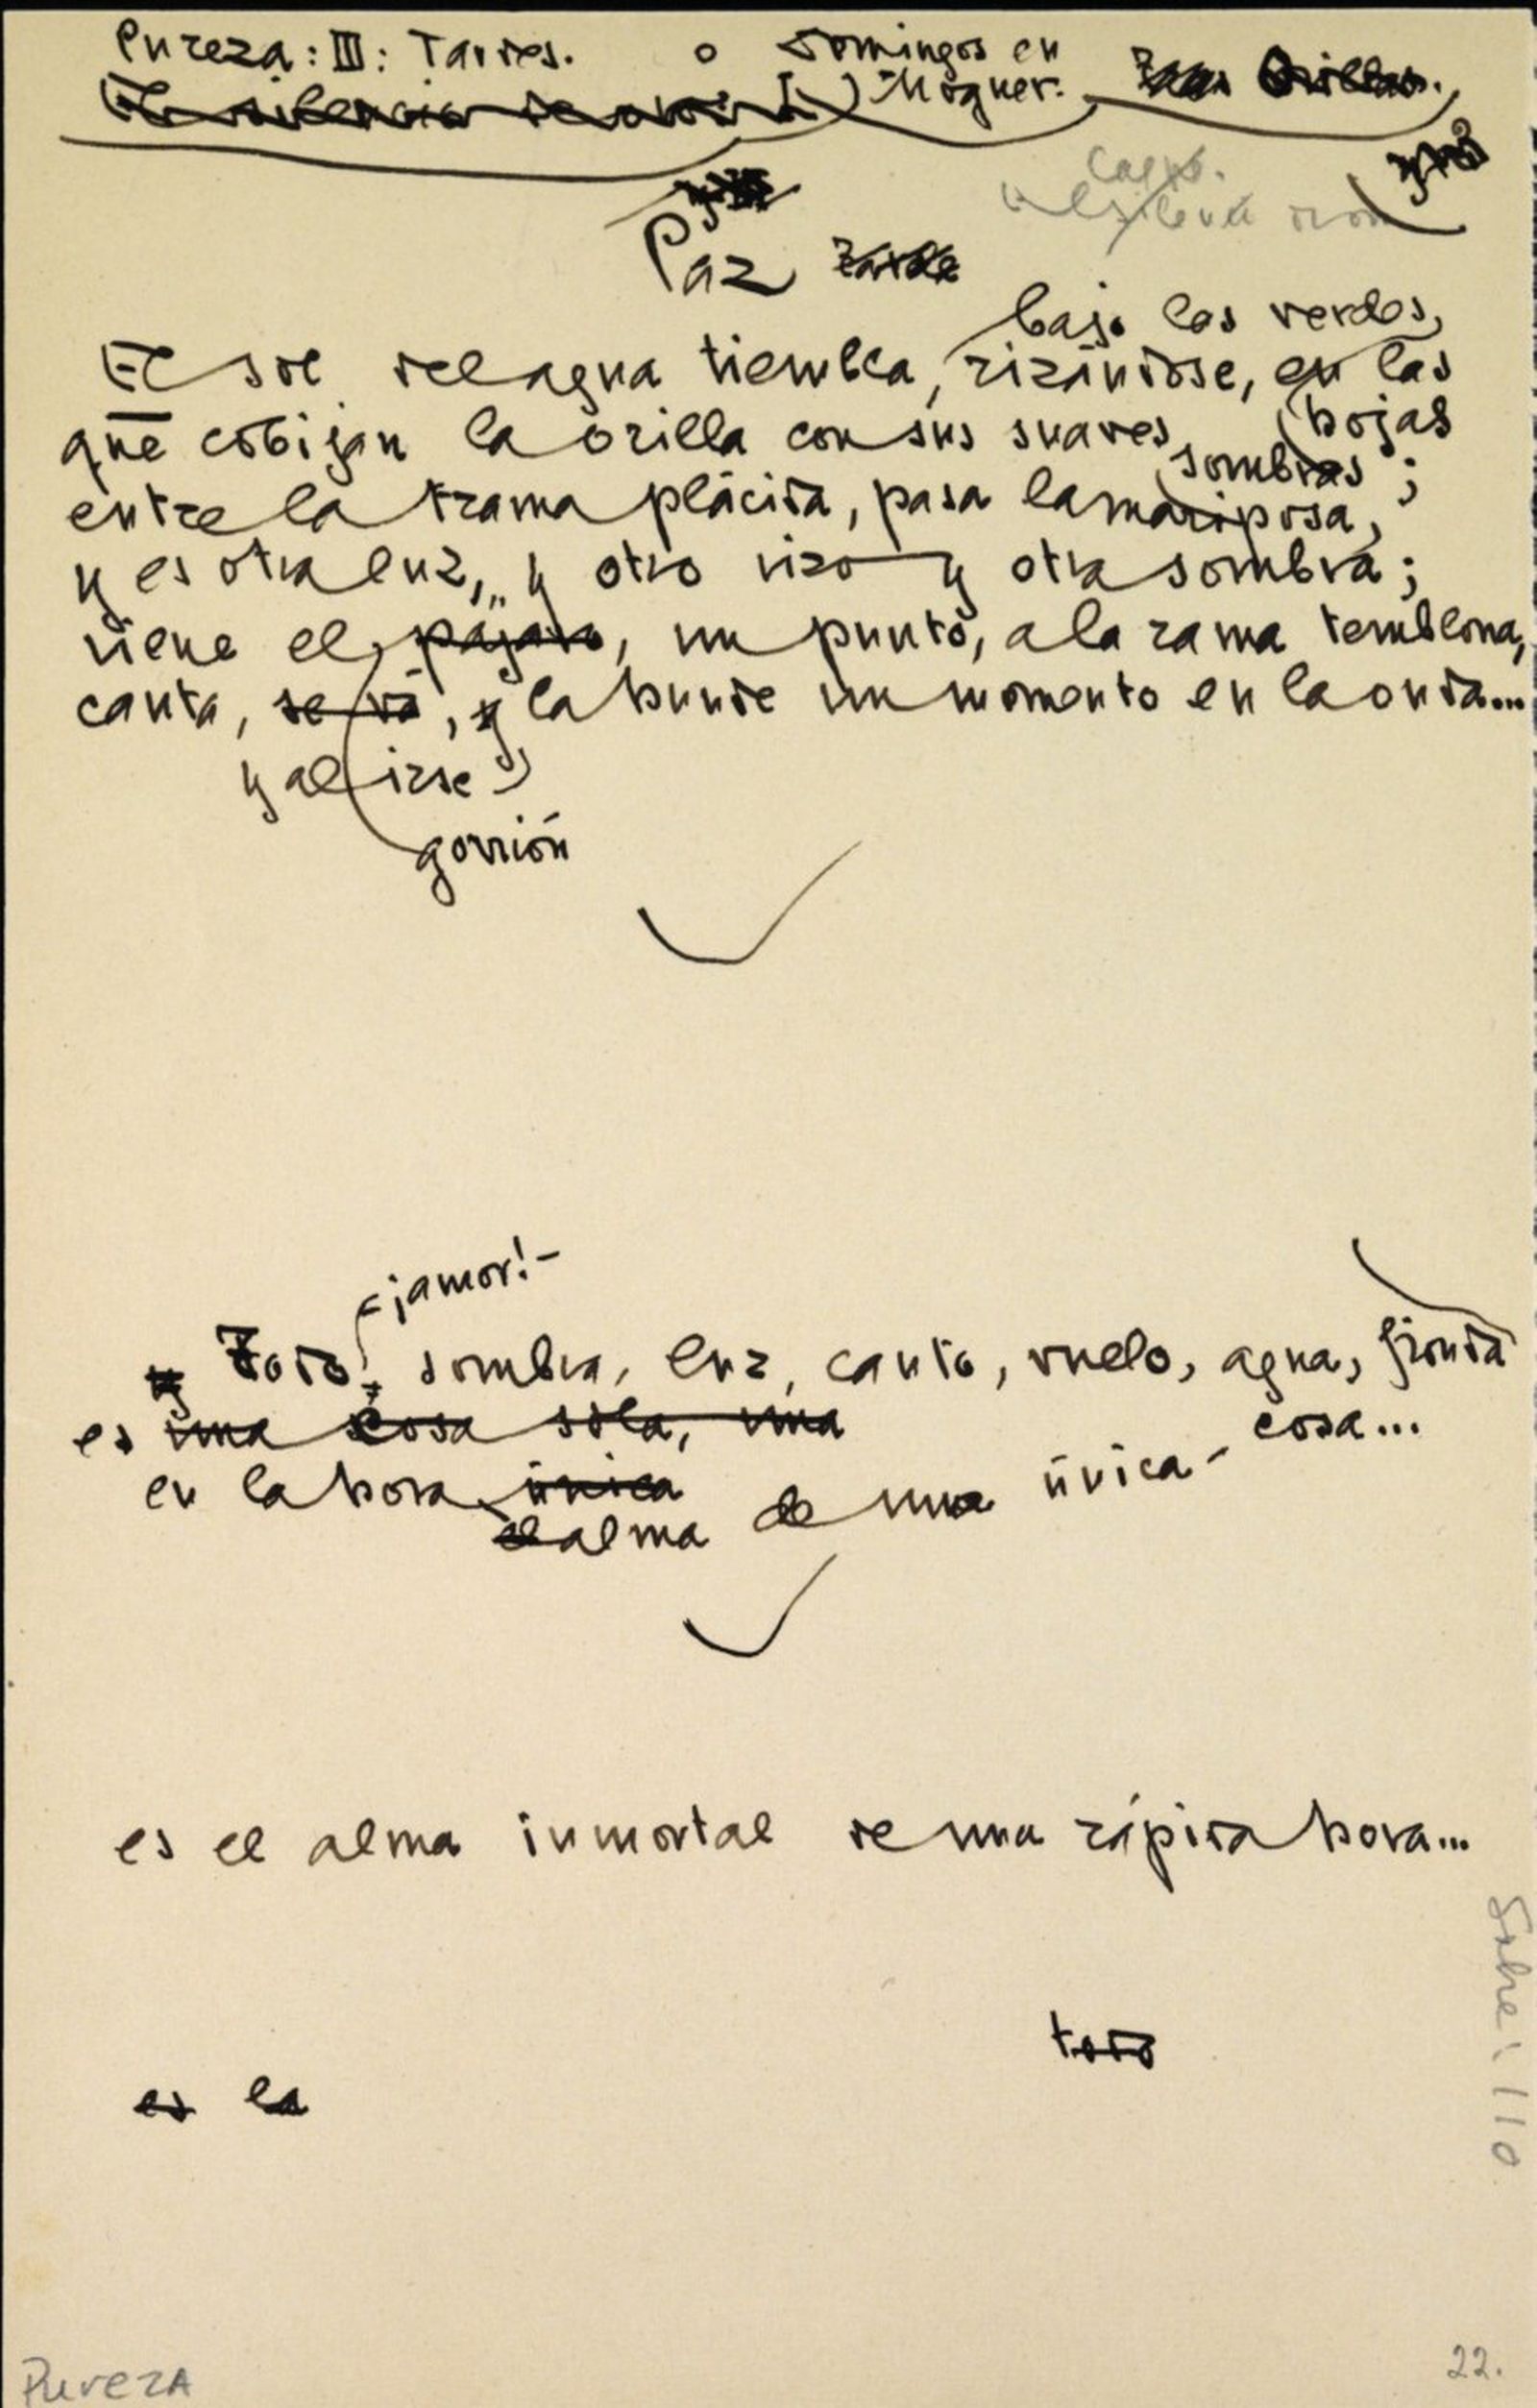 Pureza: III: Tardes. o Domingos en
El silencio de oro: (I) Moguer. Orillas.
Paz Tarde
bajo las verdes,
El sol del agua tiembla, rizándose, en las
hojas
que cobijan la orilla con sus suaves
sombras;
entre la trama plácida, pasa la mariposa,
y es otra luz, y otro rizo y otra sombra;
viene el pájaro, un punto, a la rama temblona,
canta, se vá, y la hunde un momento en la onda...
y al irse
gorrión
-¡amor!-
y Todo, sombra, luz, canto, vuelo, agua, fronda
es una cosa sola, una
cosa...
en la hora única
el alma de una única-
es el alma inmortal de una rápida hora...
todo
es la
Sobre: 110
Pureza
22.